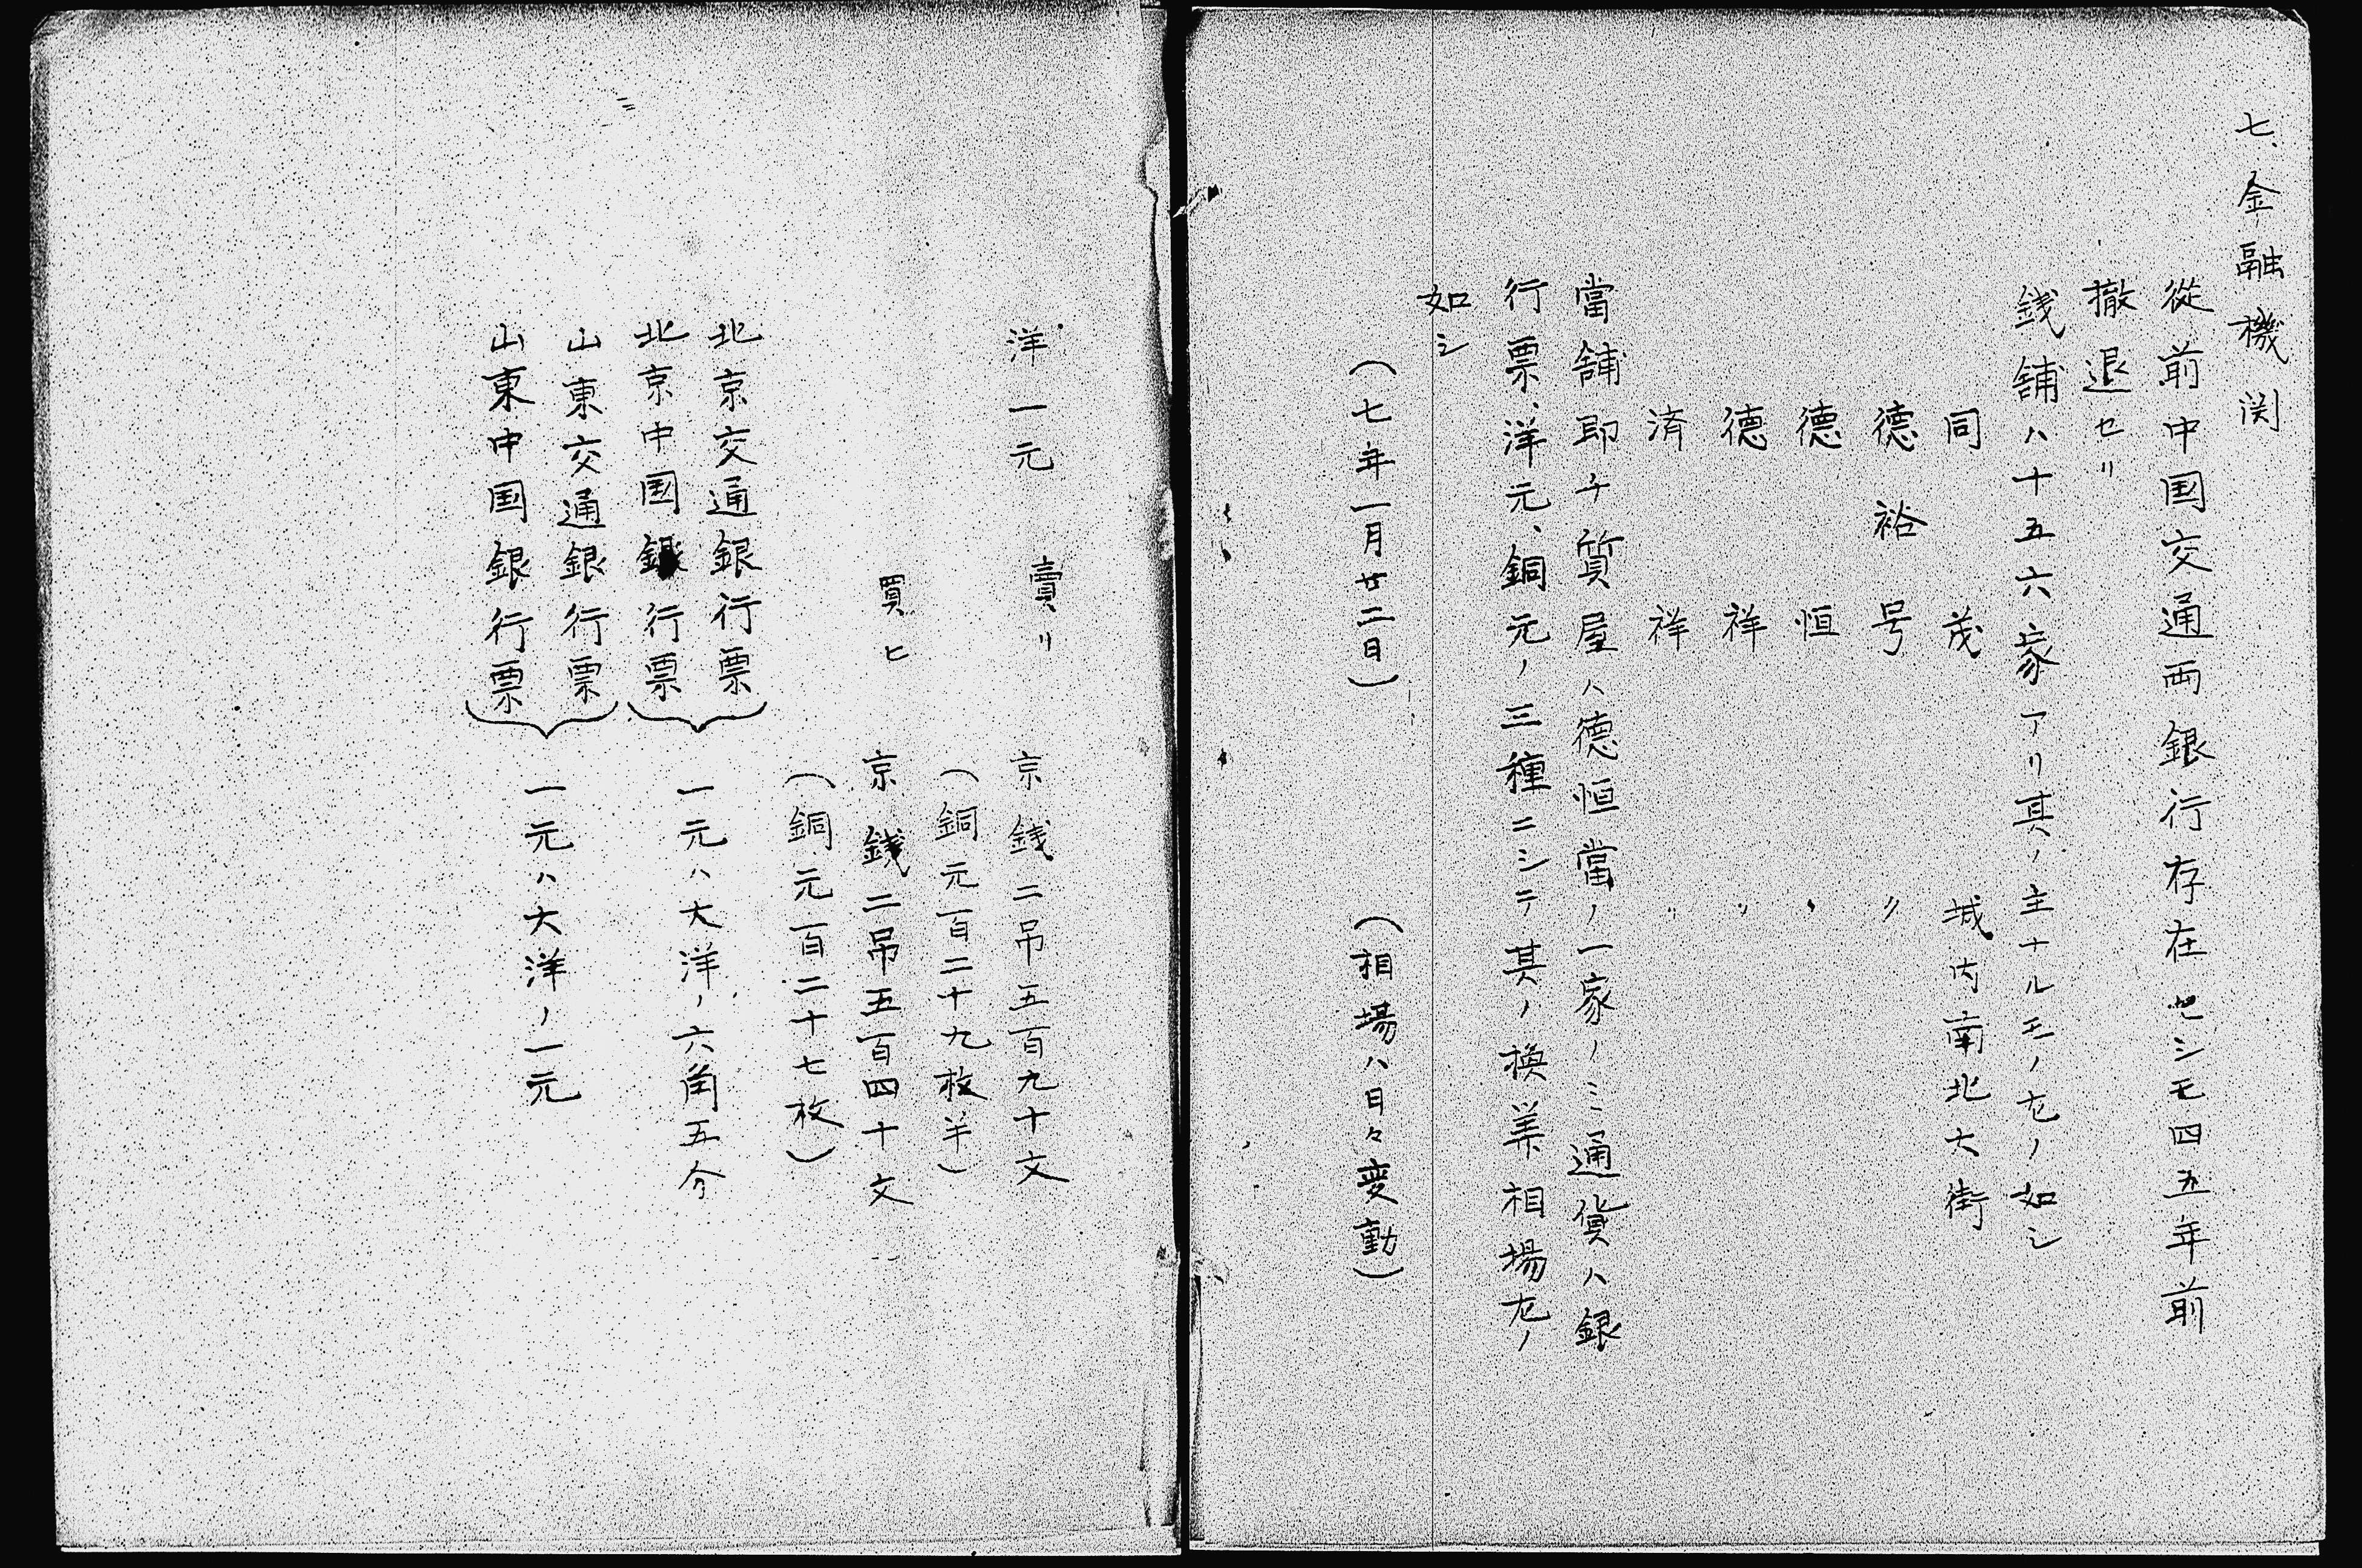 七、金融機関
從前中国交通両銀行存在セシモ四五年前
撤退セリ
銭舗ハ十五六家アリ其ノ主ナルモノ左ノ如シ
同茂 城内南北大街
德裕号 〃
德恒 〃
德祥 〃
済祥 〃
當舗即チ質屋ハ德恒當ノ一家ノミ通貨ハ銀
行票、洋元、銅元ノ三種ニシテ其ノ換算相場左ノ
如シ
(七年一月廿二日) (相場ハ日々変動)
洋一元 賣リ 京銭二吊五百九十文
(銅元百二十九枚半)
買ヒ 京銭二吊五百四十文
(銅元百二十七枚)
北京交通銀行票
北京中国銀行票
一元ハ大洋ノ六角五分
山東交通銀行票
山東中国銀行票
一元ハ大洋ノ一元